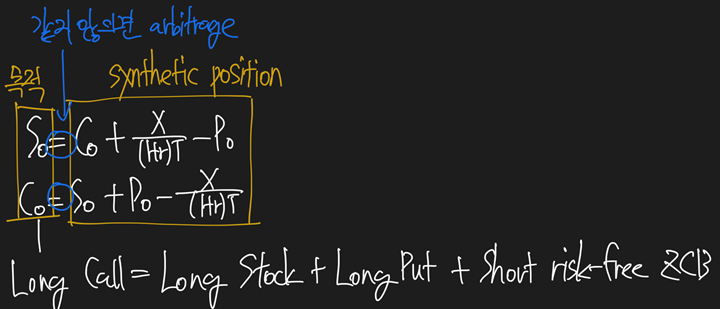 같지 않으면 arbitrage
synthetic position
S₀ = C₀ + X/(1+r)T − P₀
C₀ = S₀ + P₀ − X/(1+r)T
Long Call = Long Stock + Long Put + Short risk-free ZCB